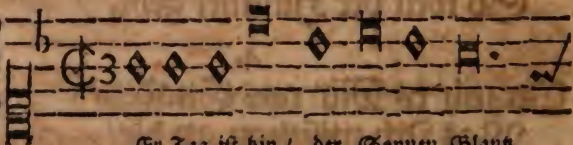 Er Tag iſt hin / der Sonnen Glantz